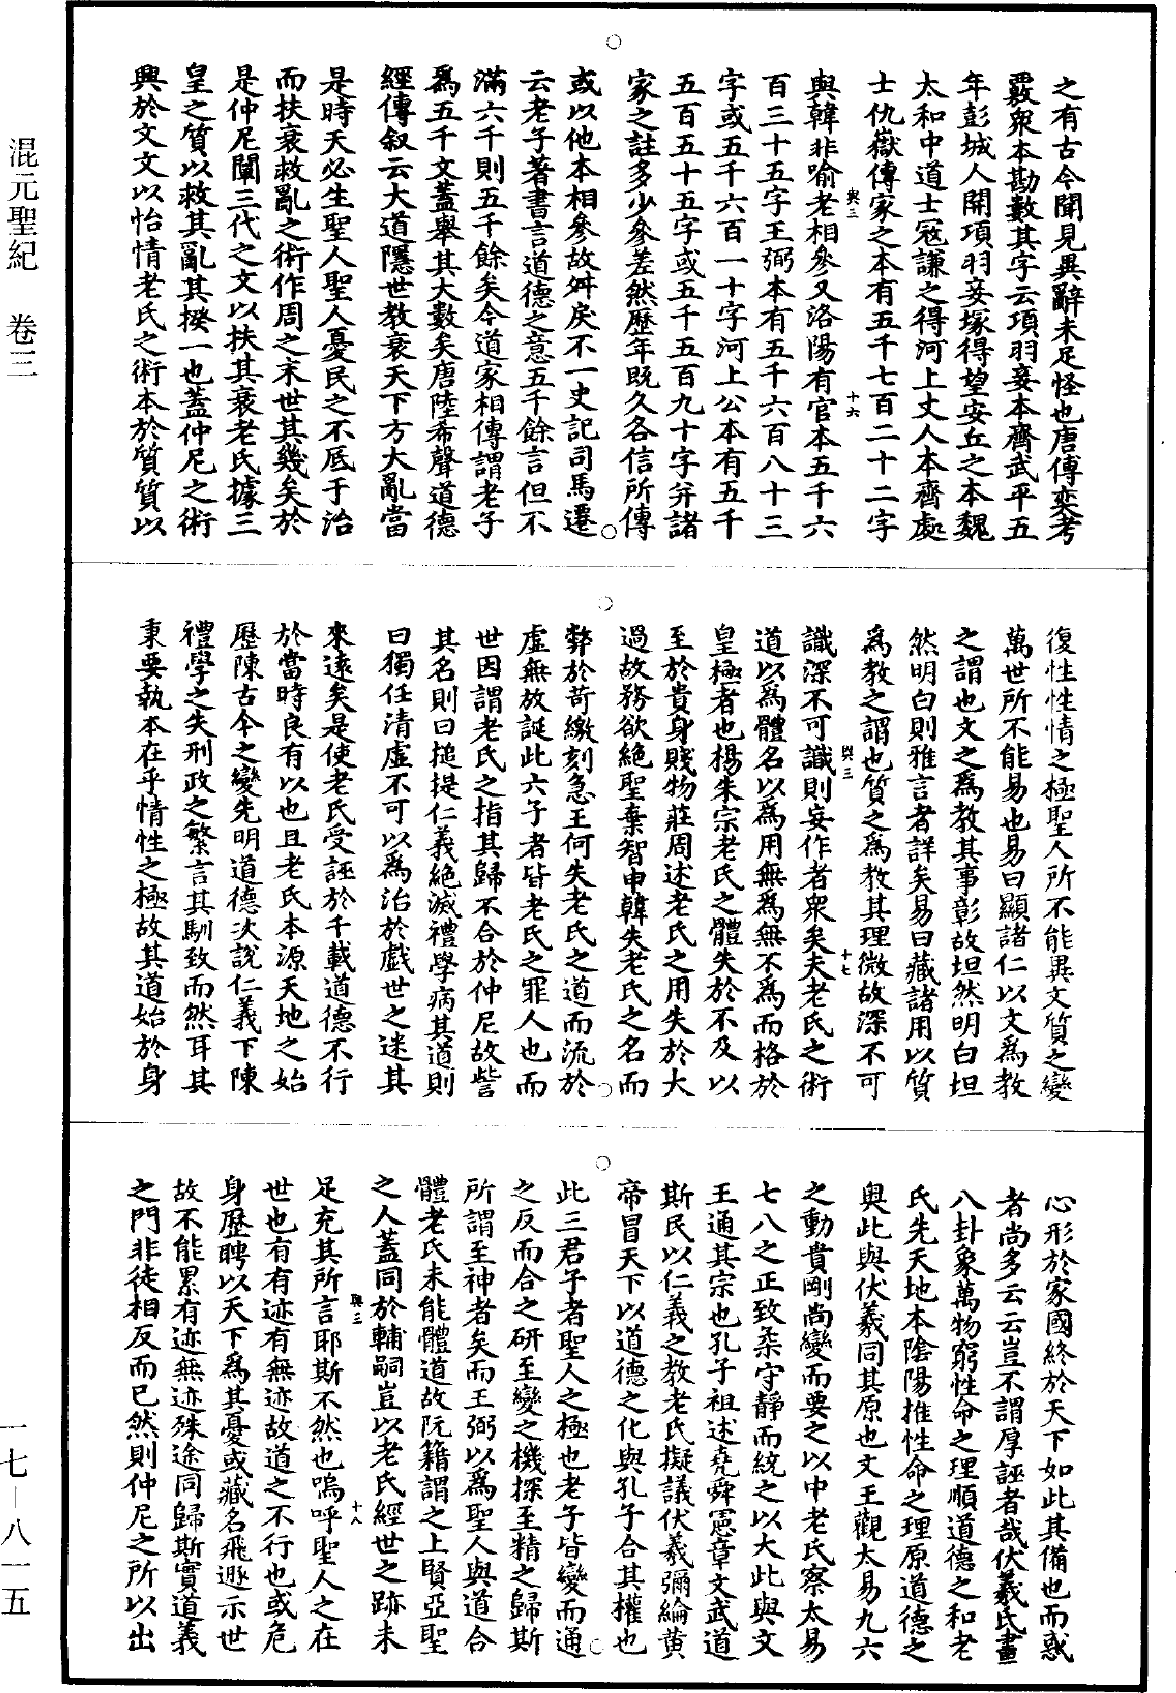 混元聖紀　卷三
之有古今聞見異辭未足怪也唐傅奕考
覈衆本勘數其字云項羽妾本齊武平五
年彭城人開項羽妾塚得望安丘之本魏
太和中道士寇謙之得河上丈人本齊處
士仇嶽傳家之本有五千七百二十二字
與韓非喻老相參又洛陽有官本五千六
百三十五字王弼本有五千六百八十三
字或五千六百一十字河上公本有五千
五百五十五字或五千五百九十字并諸
家之註多少參差然歷年既久各信所傳
或以他本相參故舛戾不一史記司馬遷
云老子著書言道德之意五千餘言但不
滿六千則五千餘矣今道家相傳謂老子
爲五千文蓋舉其大數矣唐陸希聲道德
經傳叙云大道隱世教衰天下方大亂當
是時天必生聖人聖人憂民之不厎于治
而扶衰救亂之術作周之末世其幾矣於
是仲尼闡三代之文以扶其衰老氏據三
皇之質以救其亂其揆一也蓋仲尼之術
興於文文以怡情老氏之術本於質質以
與三
十六
復性性情之極聖人所不能異文質之變
萬世所不能易也易曰顯諸仁以文爲教
之謂也文之爲教其事彰故坦然明白坦
然明白則雅言者詳矣易曰藏諸用以質
爲教之謂也質之爲教其理微故深不可
識深不可識則妄作者衆矣夫老氏之術
道以爲體名以爲用無爲無不爲而格於
皇極者也楊朱宗老氏之體失於不及以
至於貴身賤物莊周述老氏之用失於大
過故務欲絕聖棄智申韓失老氏之名而
弊於苛繳刻急王何失老氏之道而流於
虛無放誕此六子者皆老氏之罪人也而
世因謂老氏之指其歸不合於仲尼故訾
其名則曰搥提仁義絕滅禮學病其道則
曰獨任清虛不可以爲治於戲世之迷其
來遠矣是使老氏受誣於千載道德不行
於當時良有以也且老氏本源天地之始
歷陳古今之變先明道德次說仁義下陳
禮學之失刑政之繁言其馴致而然耳其
秉要執本在乎情性之極故其道始於身
與三
十七
心形於家國終於天下如此其備也而惑
者尚多云云豈不謂厚誣者哉伏羲氏畫
八卦象萬物窮性命之理順道德之和老
氏先天地本陰陽推性命之理原道德之
奧此與伏羲同其原也文王觀太易九六
之動貴剛尚變而要之以中老氏察太易
七八之正致柔守靜而統之以大此與文
王通其宗也孔子祖述堯舜憲章文武道
斯民以仁義之教老氏擬議伏羲彌綸黄
帝冒天下以道德之化與孔子合其權也
此三君子者聖人之極也老子皆變而通
之反而合之研至變之機探至精之歸斯
所謂至神者矣而王弼以爲聖人與道合
體老氏未能體道故阮籍謂之上賢亞聖
之人蓋同於輔嗣豈以老氏經世之跡未
足充其所言耶斯不然也嗚呼聖人之在
世也有有迹有無迹故道之不行也或危
身歷聘以天下爲其憂或藏名飛遯示世
故不能累有迹無迹殊途同歸斯實道義
之門非徒相反而已然則仲尼之所以出
與三
十八
一七－八一五